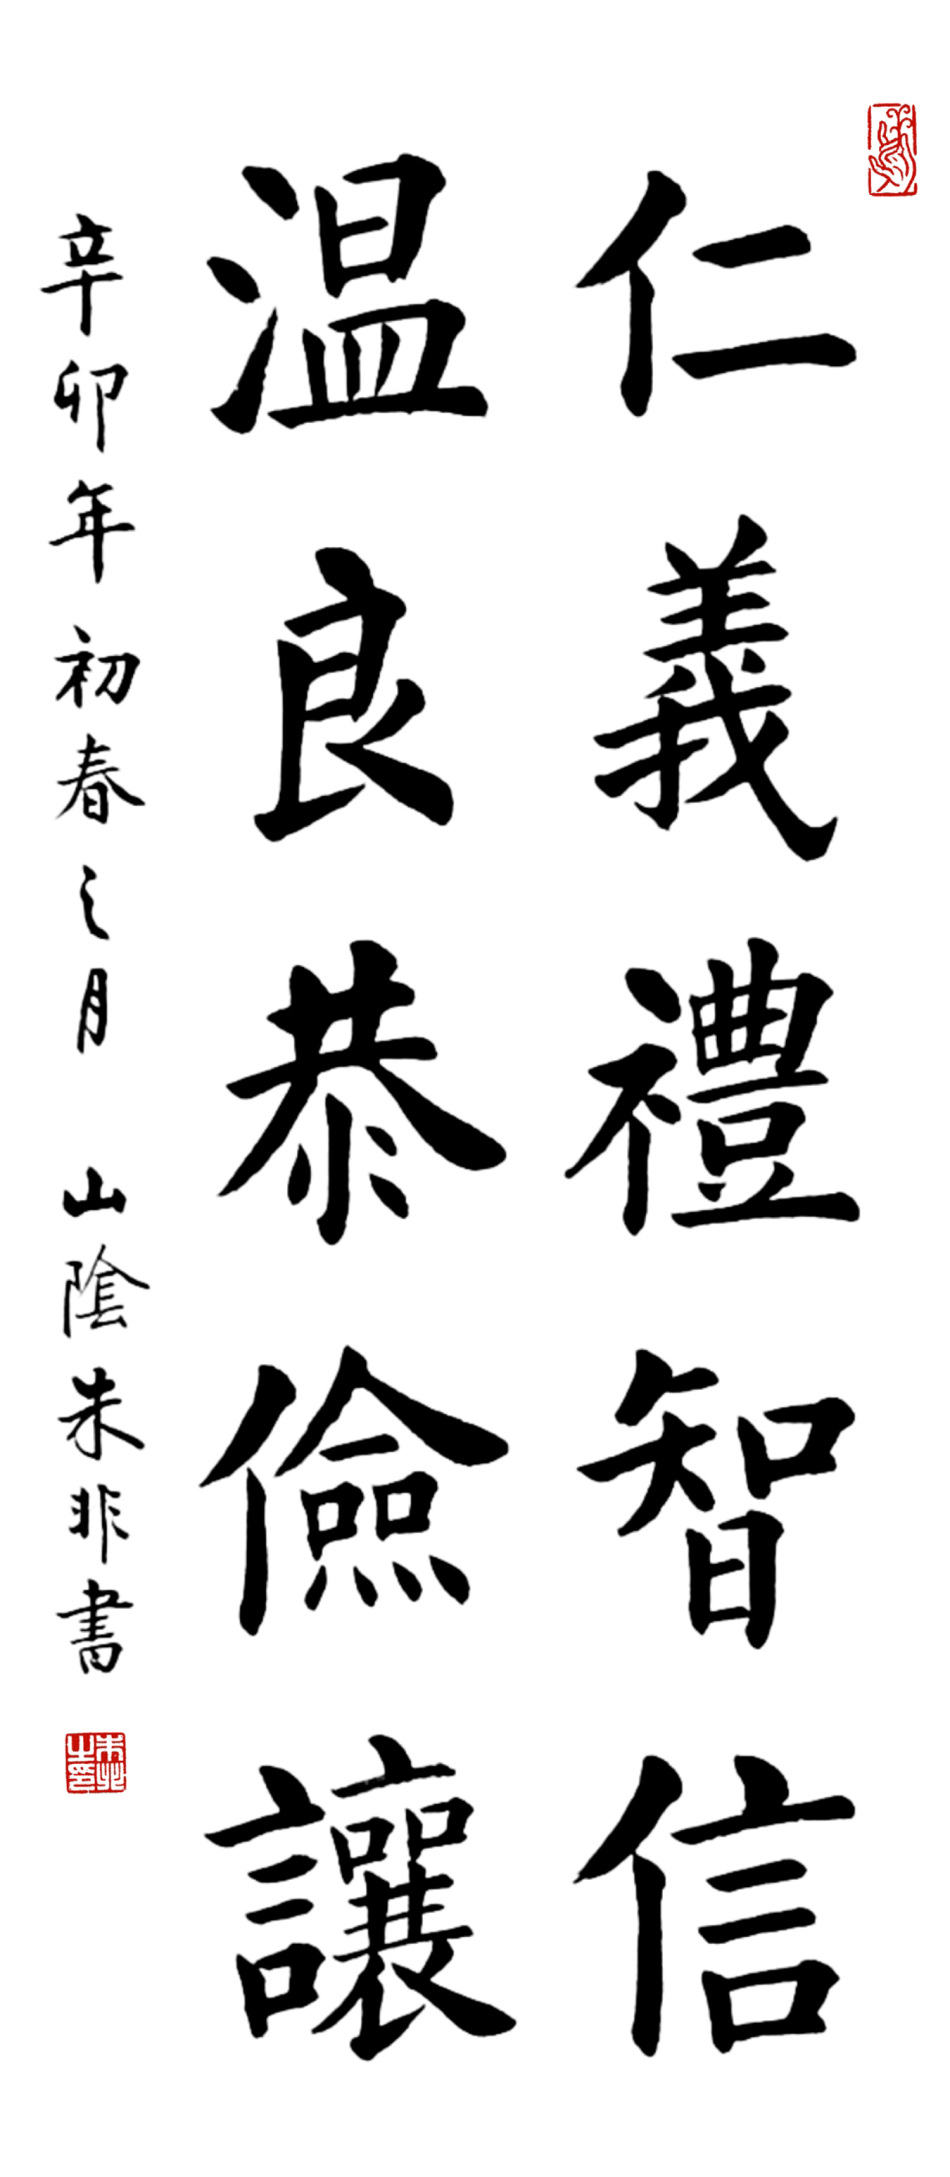 仁義禮智信
温良恭儉讓
辛卯年初春之月 山陰朱非書